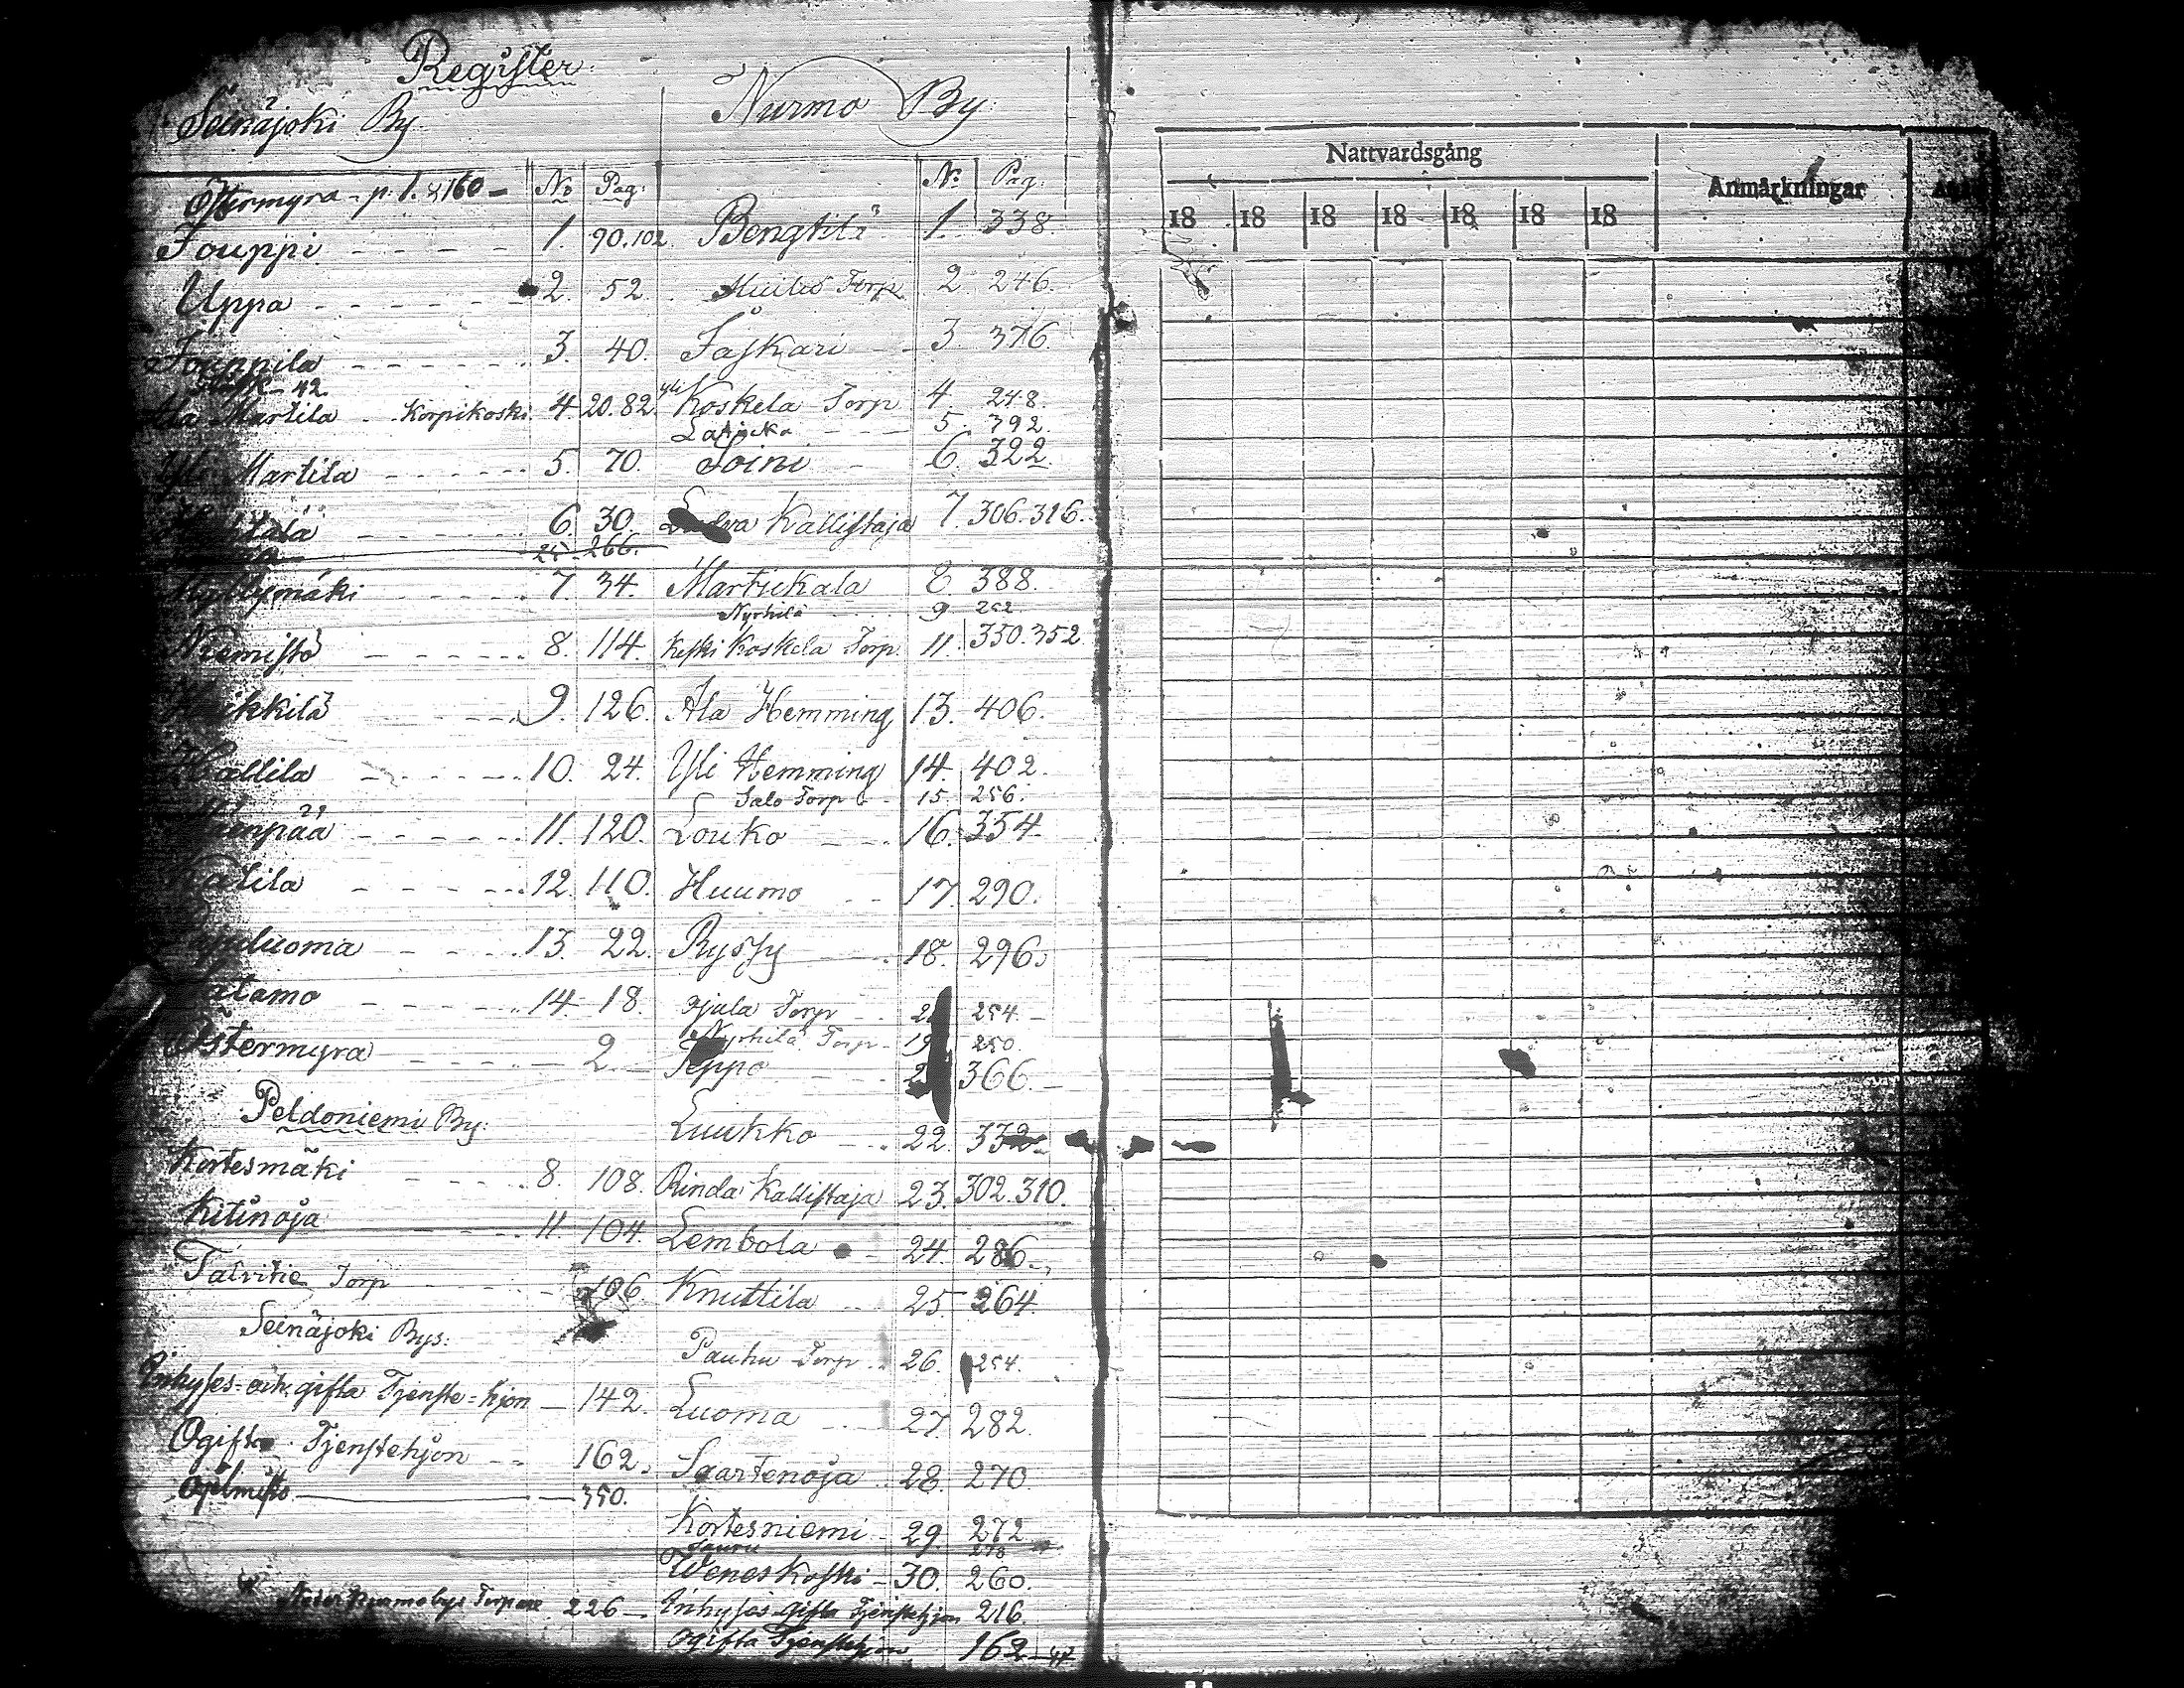 Register
Seinäjoki By
Östermyra - p. 1. & 160 - No Pag:
Jouppi 1. 90.102
Uppa 2. 52.
Jouppila 3. 40.
42.
Martila Korpikoski 4. 20.82
Yli Martila 5. 70.
6. 30.
25 266.
Myllymäki 7. 34.
Niemistö 8. 114.
9. 126.
Hallila 10. 24.
11. 120.
Katila 12. 110.
luoma 13. 22.
14. 18.
Östermyra 2.
Peldoniemi By:
Kortesmäki 8. 108.
Kitinoja 11. 104.
Talvitie Torp 106
Seinäjoki Bys:
Inhyses- och gifta Tjenste-hjon 142.
Ogifta Tjenstehjon 162.
350.
Nurmo bys Torpare 226
Nurmo By:
No Pag:
Bengtilä 1. 338.
Torp 2 246.
Jåskari 3. 376.
yli Koskela Torp 4. 248.
5. 392.
Soini 6. 322.
Kallistaja 7. 306.316.
Martickala 8 388.
Nyrhilä 9. 252.
Keski Koskela Torp 11. 350.352
Ala Hemming 13. 406.
Yli Hemming 14. 402.
Salo Torp 15. 256.
Louko 16. 354
Huumo 17. 290.
Ryssy 18. 296.
Torp 254.
Nyrhilä Torp 19 250.
Teppo 366.
Luukko 22.
Rinda Kallistaja 23. 302.310.
Lembola 24. 286
Knuttila 25 264
Pauhu Torp 26. 254.
Luoma 27 282.
Saartenoja 28. 270
Kortesniemi 29. 272
Weneskoski 30. 260.
Inhyses gifta Tjenstehjon 216.
Ogifta Tjenstehjon 162
Nattvardsgång Anmärkningar
18 18 18 18 18 18 18